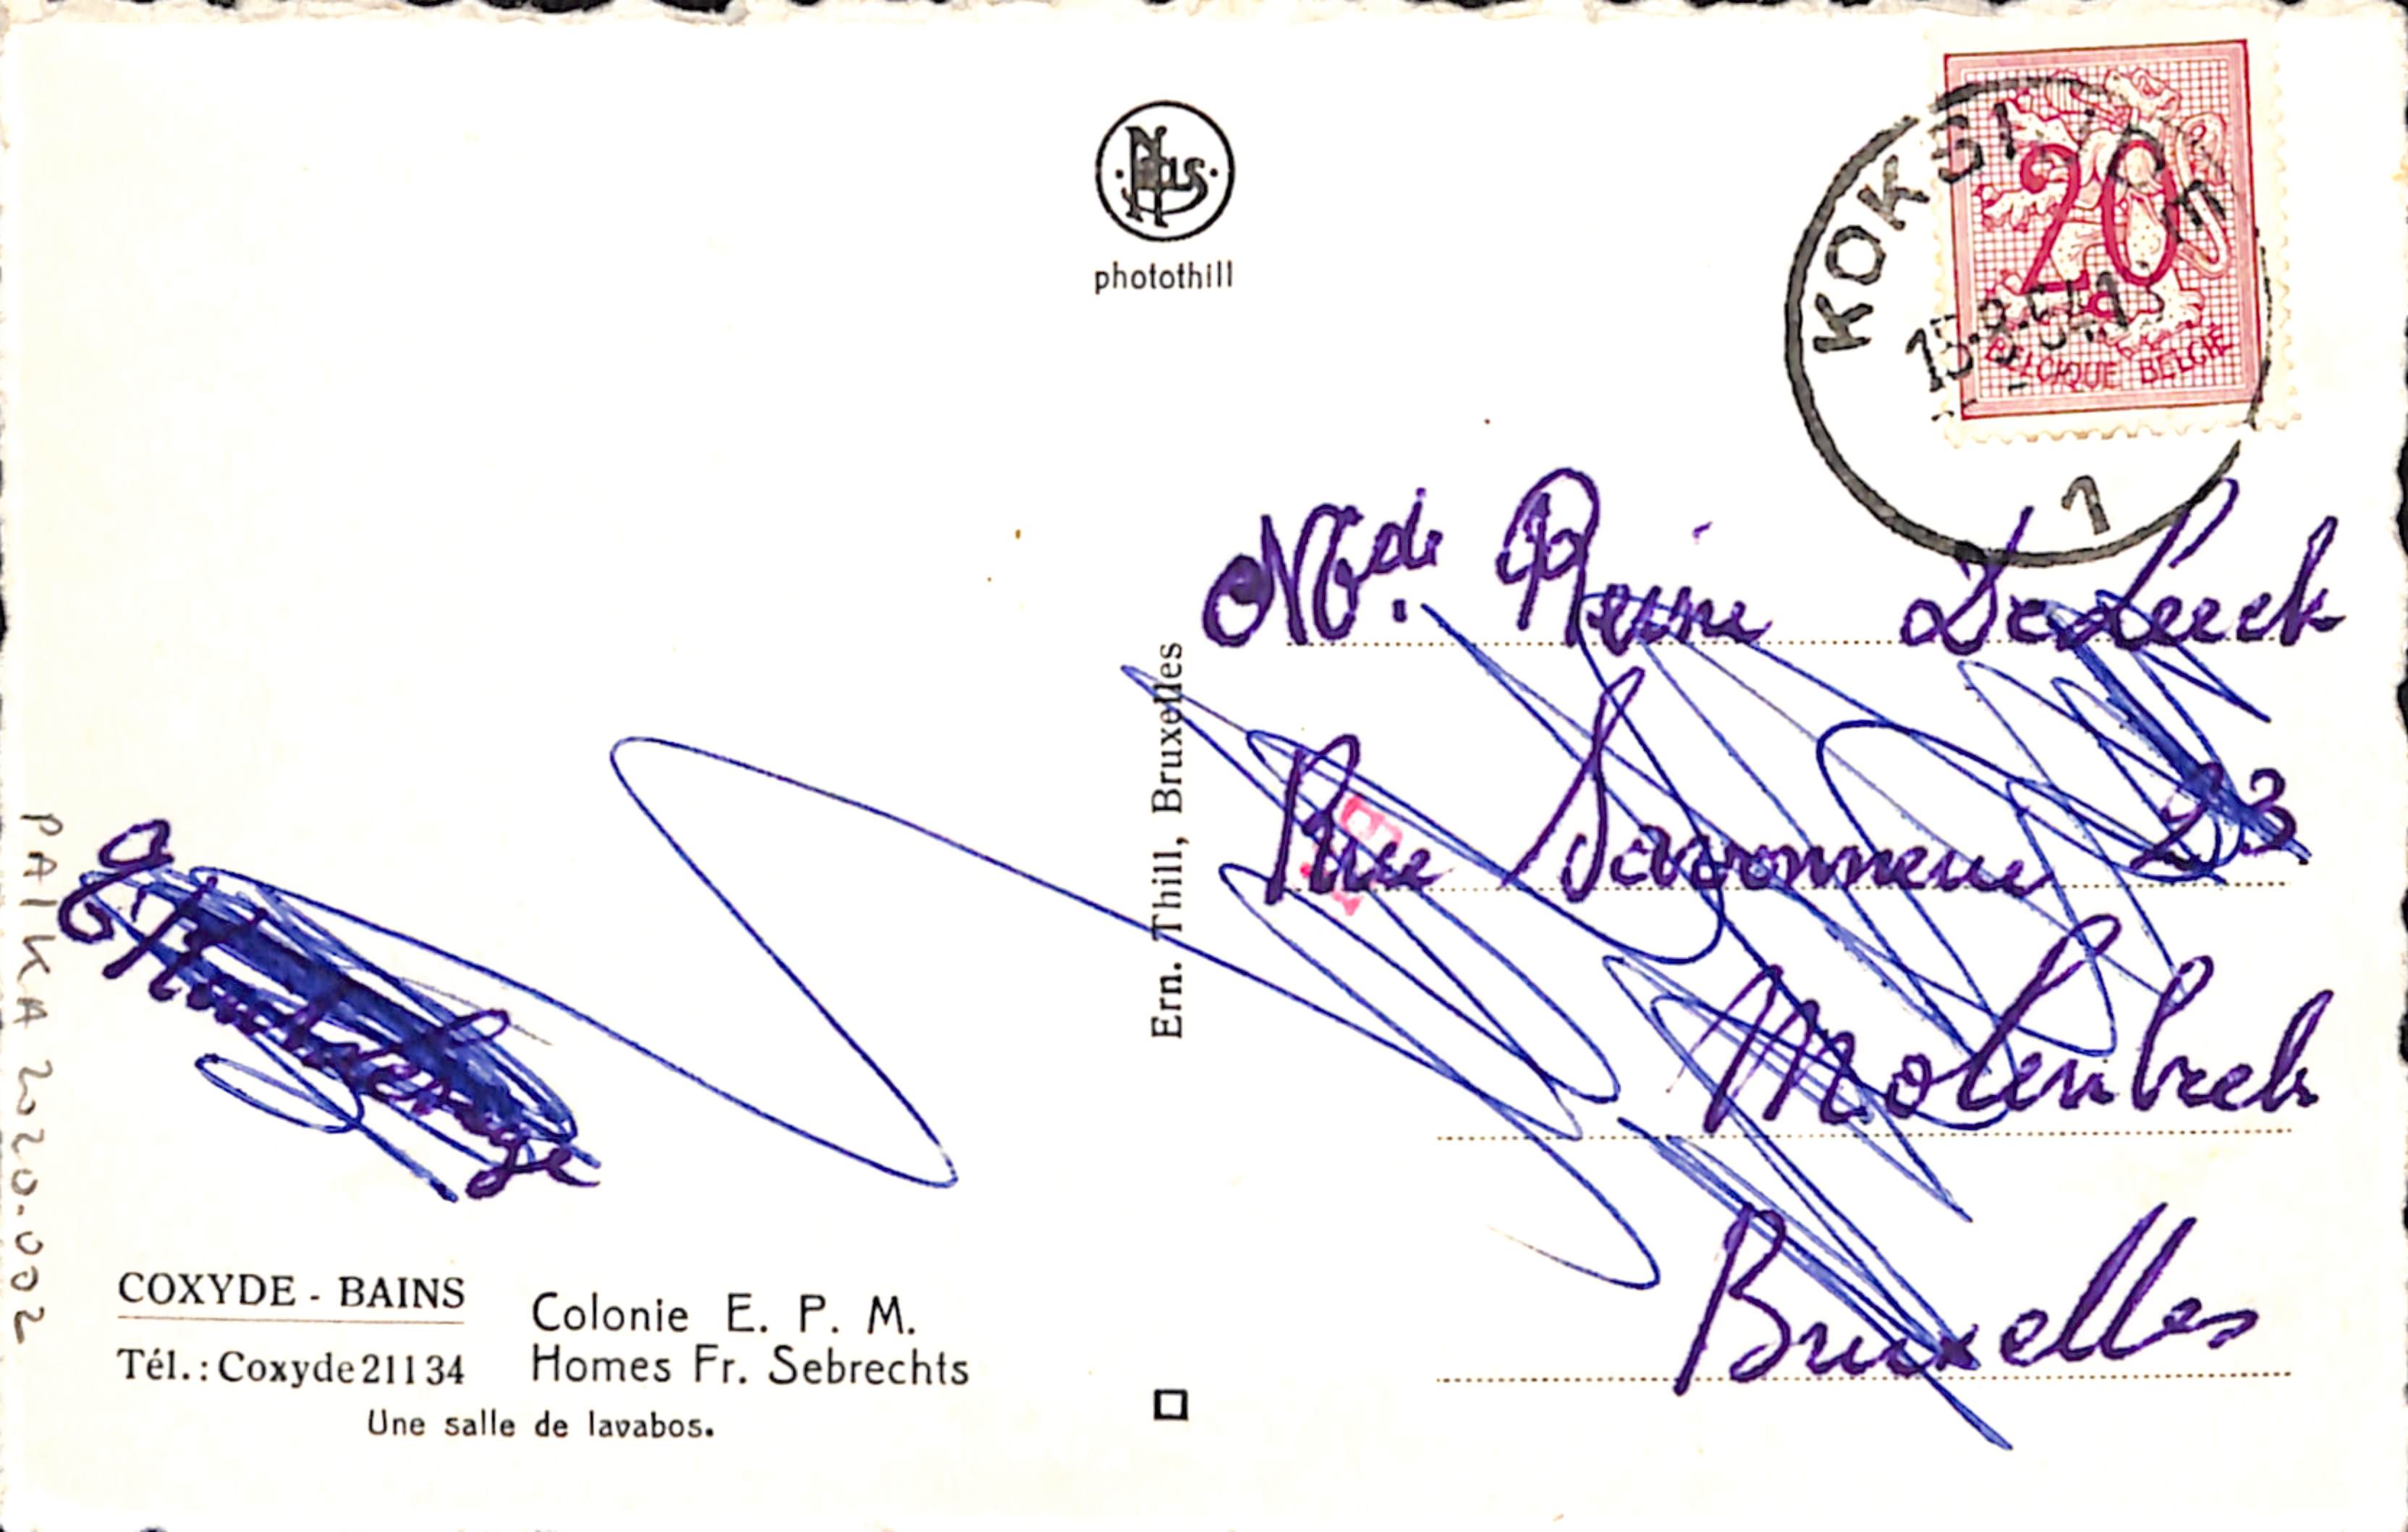 Nels
photothill
KOKSIJDE
20
BELGIQUE BELGIË
1
Reine Declerck
Rue Savonnerie 23
Molenbeek
Bruxelles
Ern. Thill, Bruxelles
PAIKA 2020.002
COXYDE - BAINS
Tél.: Coxyde 21134
Colonie E. P. M.
Homes Fr. Sebrechts
Une salle de lavabos.